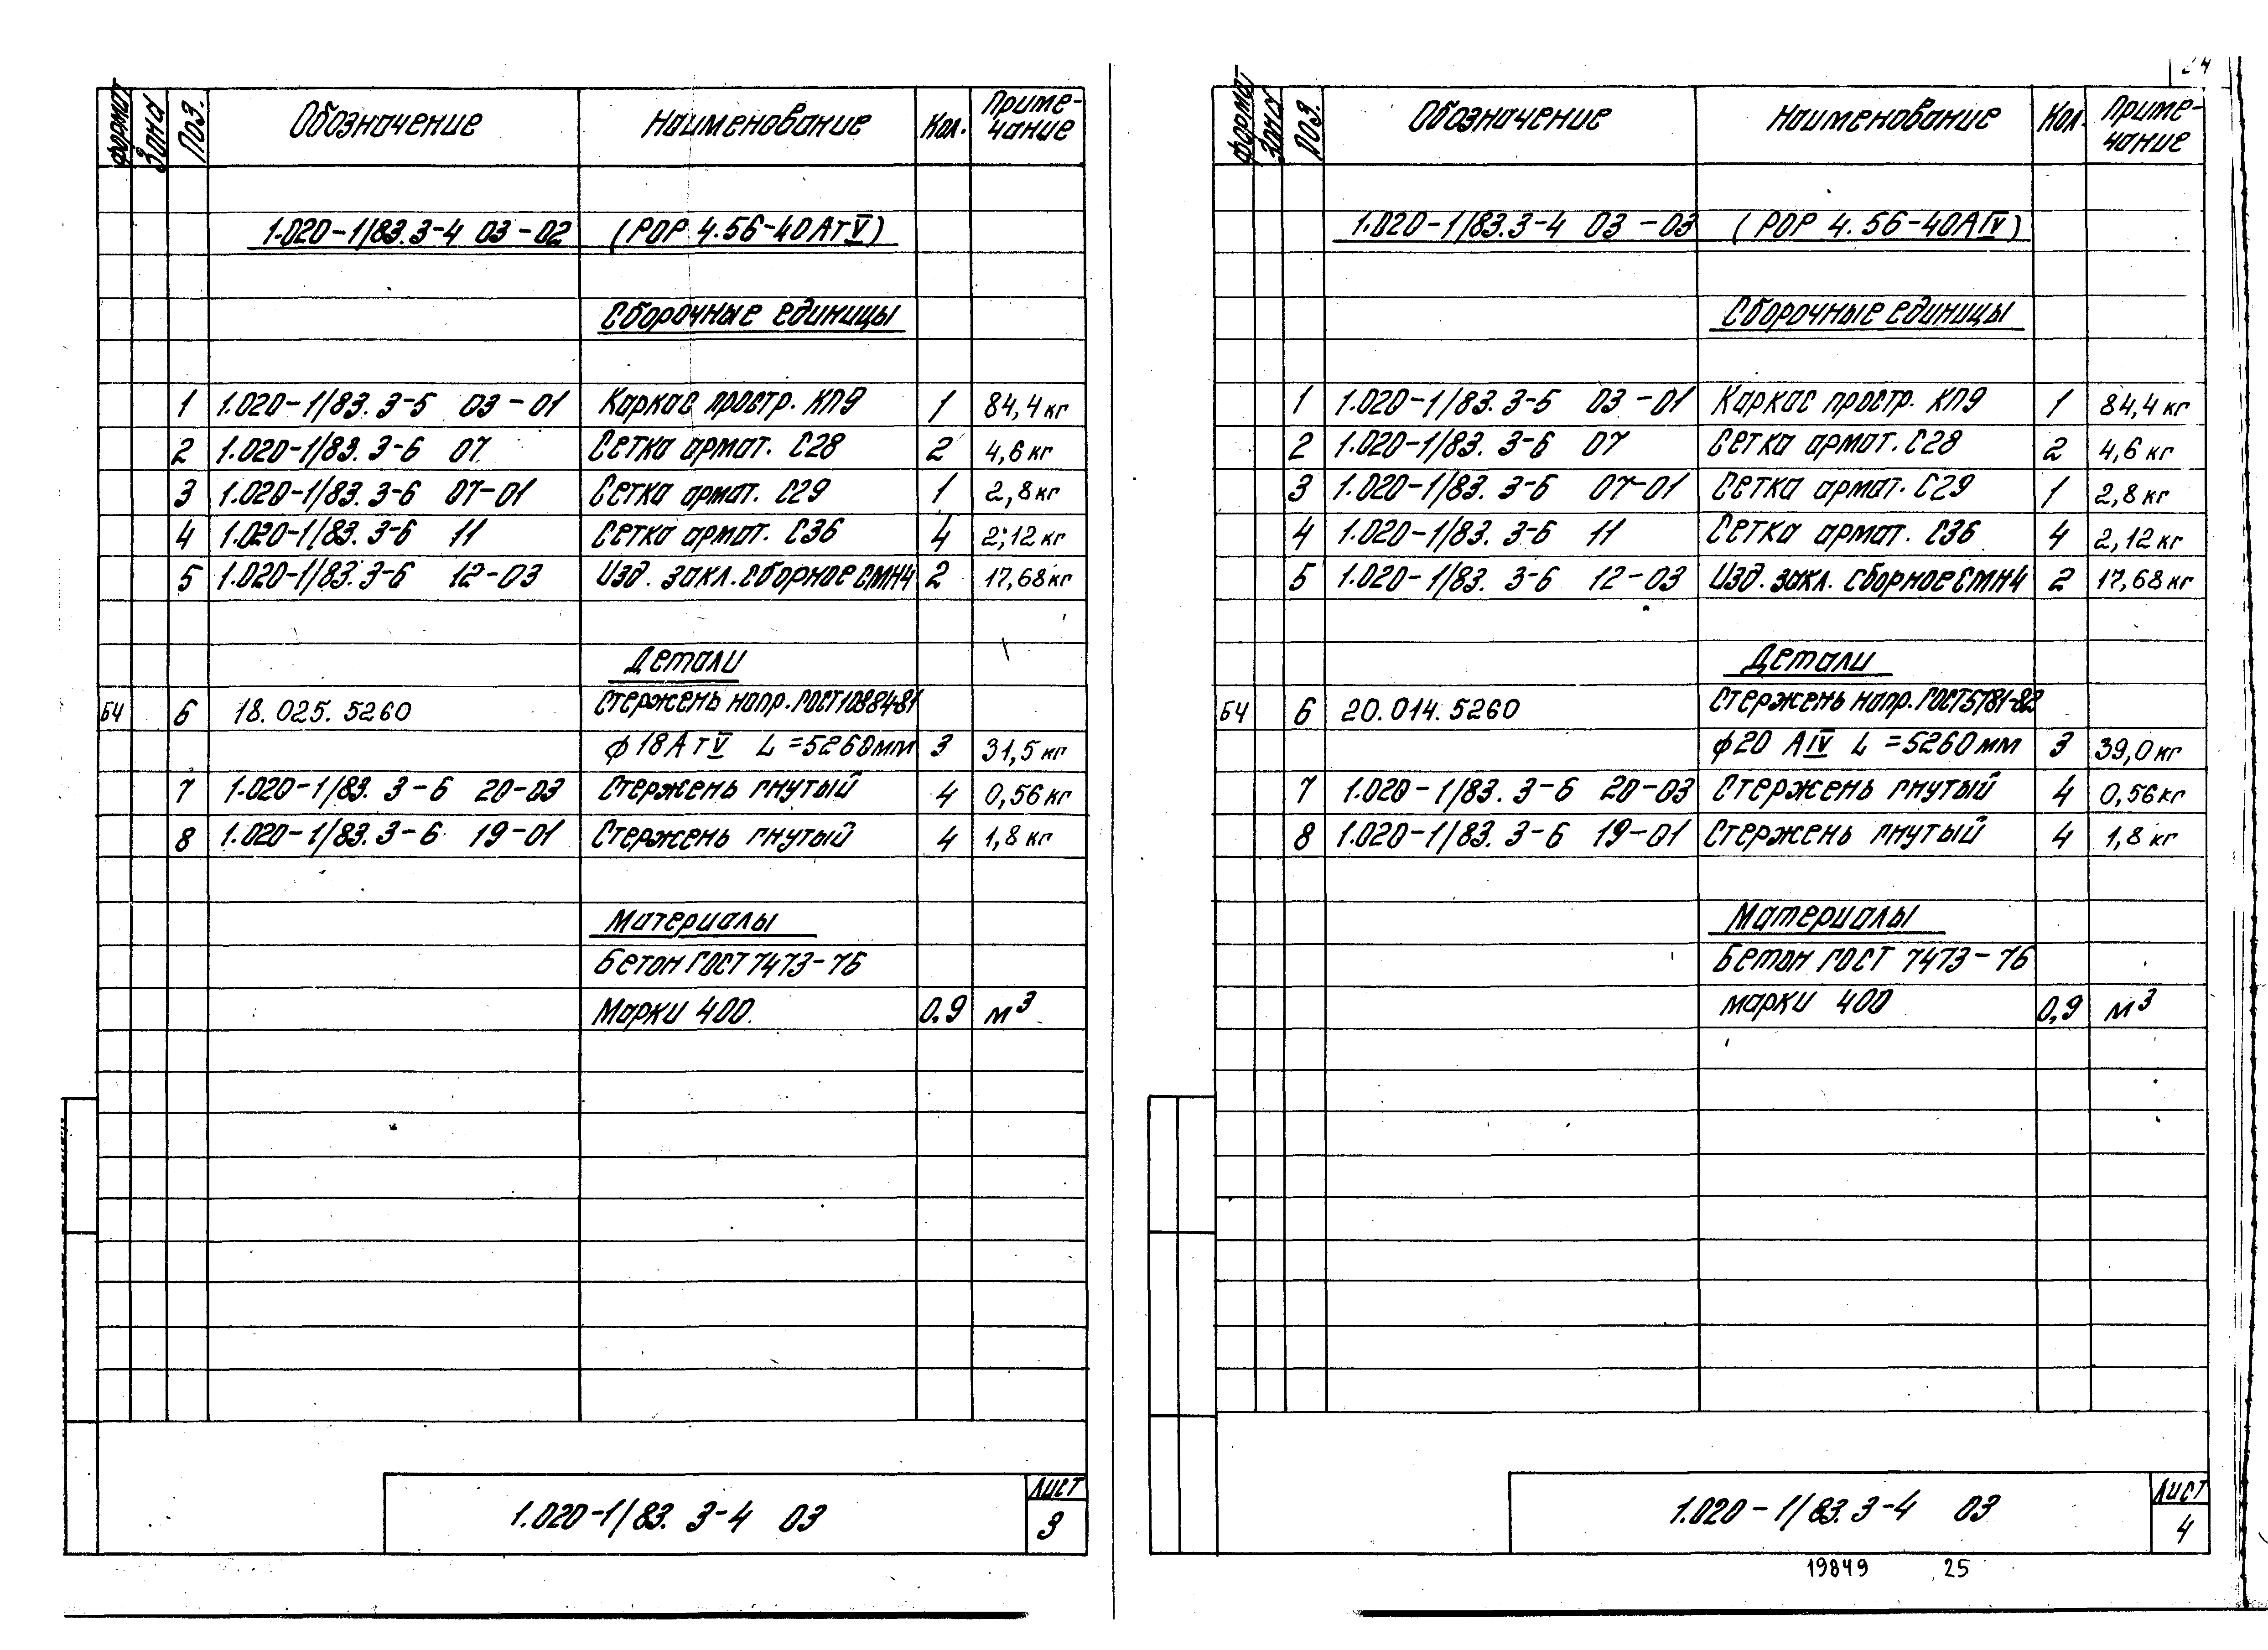 Формат Зона Поз. Обозначение Наименование Кол. Приме-
чание
1.020-1/83.3-4 03-02 (РОР 4.56-40АтV)
Сборочные единицы
1 1.020-1/83.3-5 03-01 Каркас простр. КП9 1 84,4кг
2 1.020-1/83.3-6 07 Сетка армат. С28 2 4,6кг
3 1.020-1/83.3-6 07-01 Сетка армат. С29 1 2,8кг
4 1.020-1/83.3-6 11 Сетка армат. С36 4 2,12кг
5 1.020-1/83.3-6 12-03 Изд. закл. сборное СМН4 2 17,68кг
Детали
БЧ 6 18.025.5260 Стержень напр. ГОСТ10884-81
ф18АтV L=5260мм 3 31,5кг
7 1.020-1/83.3-6 20-03 Стержень гнутый 4 0,56кг
8 1.020-1/83.3-6 19-01 Стержень гнутый 4 1,8кг
Материалы
Бетон ГОСТ 7473-76
Марки 400 0.9 м³
1.020-1/83.3-4 03
Лист
3
24
Форма- Зона Поз. Обозначение Наименование Кол. Приме-
чание
1.020-1/83.3-4 03-03 (РОР 4.56-40АIV)
Сборочные единицы
1 1.020-1/83.3-5 03-01 Каркас простр. КП9 1 84,4кг
2 1.020-1/83.3-6 07 Сетка армат. С28 2 4,6кг
3 1.020-1/83.3-6 07-01 Сетка армат. С29 1 2,8кг
4 1.020-1/83.3-6 11 Сетка армат. С36 4 2,12кг
5 1.020-1/83.3-6 12-03 Изд. закл. сборное СМН4 2 17,68кг
Детали
БЧ 6 20.014.5260 Стержень напр. ГОСТ5781-82
ф20 АIV L=5260мм 3 39,0кг
7 1.020-1/83.3-6 20-03 Стержень гнутый 4 0,56кг
8 1.020-1/83.3-6 19-01 Стержень гнутый 4 1,8кг
Материалы
Бетон ГОСТ 7473-76
марки 400 0,9 м³
1.020-1/83.3-4 03
Лист
4
19849 25